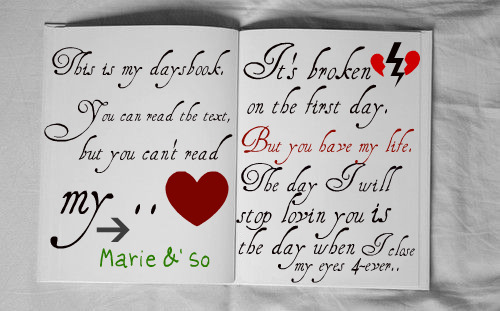 This is my daysbook.
You can read the text,
but you can't read
my ..
Marie &' so
It's broken
on the first day.
But you have my life.
The day I will
stop lovin you is
the day when I close
my eyes 4-ever..